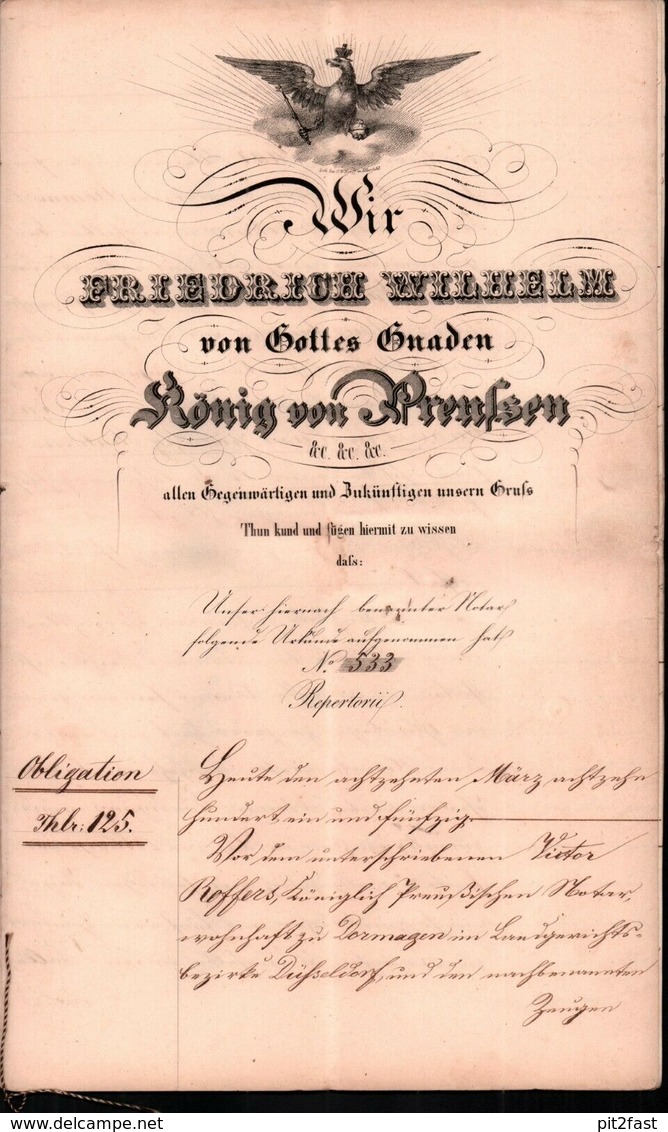 Wir
FRIEDRICH WILHELM
von Gottes Gnaden
König von Preußsen
&c. &c. &c.
allen Gegenwärtigen und Zukünftigen unsern Gruſs
Thun kund und fügen hiermit zu wissen
daſs:
Unser hiernach benannter Notar
folgende Urkunde aufgenommen hat
No 533
Repertorii.
Obligation
Thlr: 125.
Heute den achtzehnten März achtzehn
hundert ein und fünfzig
Vor dem unterschriebenen Victor
Roffers, Königlich Preußischen Notar,
wohnhaft zu Dormagen im Landgerichts-
bezirke Düsseldorf, und den nachbenannten
Zeugen
pit2fast